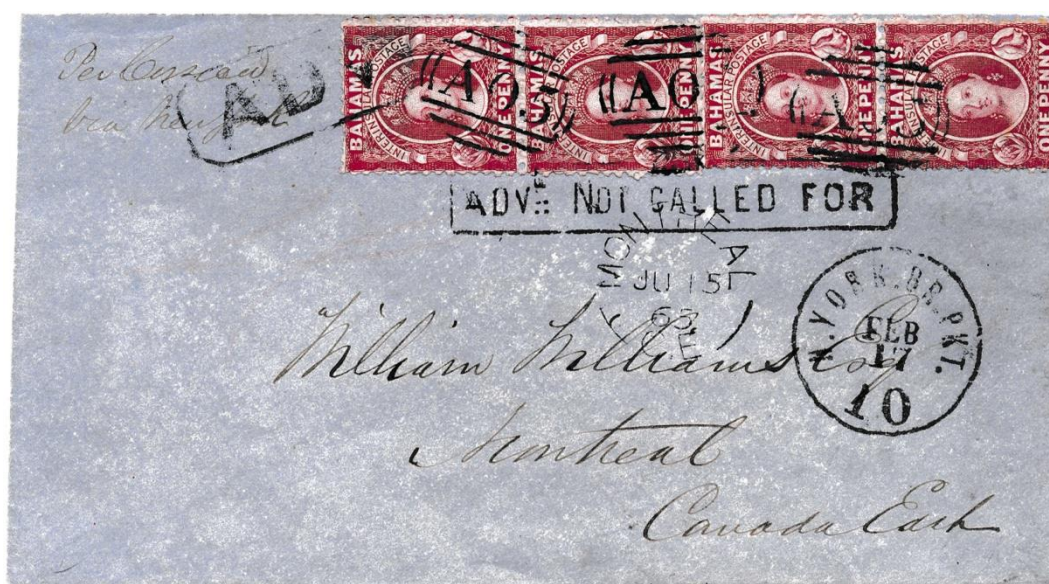 Per Corsica
via New York
BAHAMAS INTERINSULAR POSTAGE ONE PENNY
BAHAMAS INTERINSULAR POSTAGE ONE PENNY
BAHAMAS INTERINSULAR POSTAGE ONE PENNY
BAHAMAS INTERINSULAR POSTAGE ONE PENNY
A05
A05
A05
ADV: NOT CALLED FOR
MONTREAL
JU 15
63
N. YORK. BR. PKT.
FEB
17
10
William Williams Esq
Montreal
Canada East